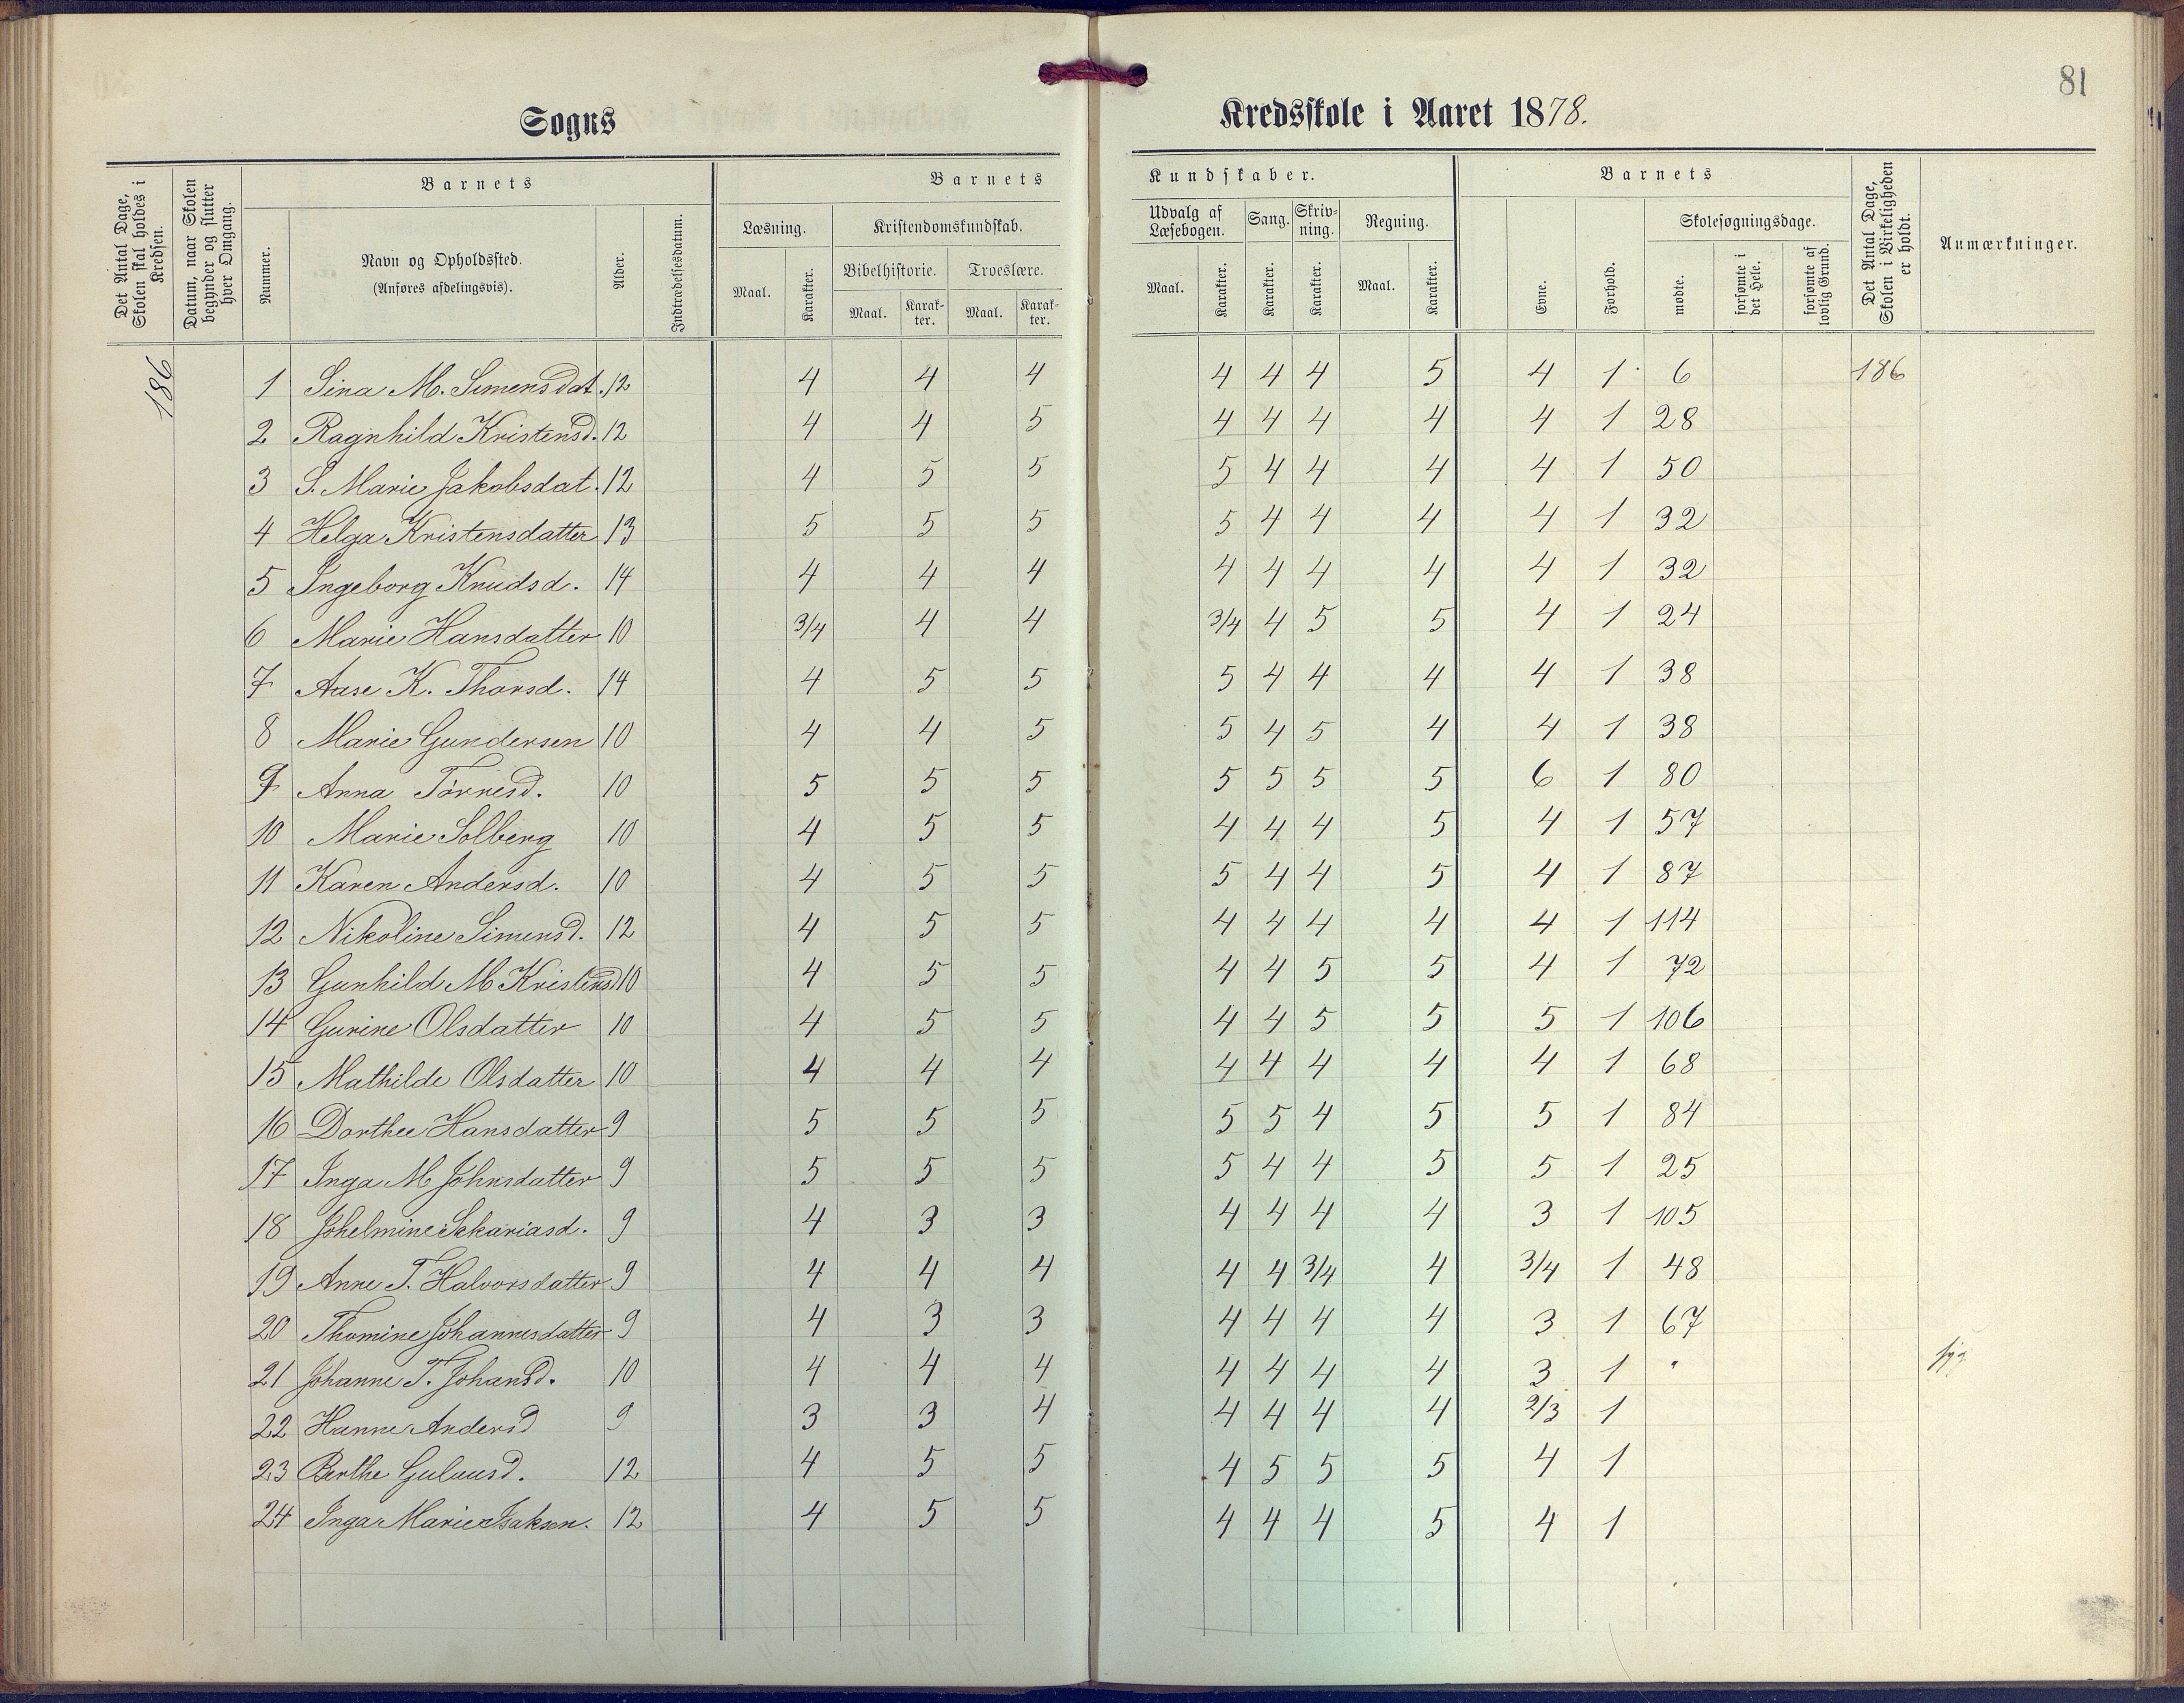 81
Sogns Kredsskole i Aaret 1878.
Det Antal Dage, Skolen skal holdes i Kredsen.
Datum, naar Skolen begynder og slutter hver Omgang.
Barnets
Nummer.
Navn og Opholdssted.
(Anføres afdelingsvis).
Alder.
Indtrædelsesdatum.
Barnets Kundskaber.
Læsning.
Maal. Karakter.
Kristendomskundskab.
Bibelhistorie. Troeslære.
Maal. Karakter. Maal. Karakter.
Udvalg af Læsebogen.
Maal. Karakter.
Sang.
Karakter.
Skrivning.
Karakter.
Regning.
Maal. Karakter.
Barnets
Evne. Forhold.
Skolesøgningsdage.
mødte.
forsømte i det Hele.
forsømte af lovlig Grund.
Det Antal Dage, Skolen i Virkeligheden er holdt.
Anmærkninger.
186 1 Sina M. Simensdat. 12 4 4 4 4 4 4 5 4 1 6 186
2 Ragnhild Kristensd. 12 4 4 5 4 4 4 4 4 1 28
3 S. Marie Jakobsdat. 12 4 5 5 5 4 4 4 4 1 50
4 Helga Kristensdatter 13 5 5 5 5 4 4 4 4 1 32
5 Ingeborg Knudsd. 14 4 4 4 4 4 4 4 4 1 32
6 Marie Hansdatter 10 3/4 4 4 3/4 4 5 5 4 1 24
7 Aase K. Thorsd. 14 4 5 5 5 4 4 4 4 1 38
8 Marie Gundersen 10 4 4 5 5 4 5 4 4 1 38
9 Anna Törresd. 10 5 5 5 5 5 5 5 6 1 80
10 Marie Solberg 10 4 5 5 4 4 4 5 4 1 57
11 Karen Andersd. 10 4 5 5 5 4 4 5 4 1 87
12 Nikoline Simensd. 12 4 5 5 4 4 4 4 4 1 114
13 Gunhild M Kristensd 10 4 5 5 4 4 5 5 4 1 72
14 Gurine Olsdatter 10 4 5 5 4 4 5 5 5 1 106
15 Mathilde Olsdatter 10 4 4 4 4 4 4 4 4 1 68
16 Dorthee Hansdatter 9 5 5 5 5 5 4 5 5 1 84
17 Inga M Johnsdatter 9 5 5 5 5 4 4 5 5 1 25
18 Johelmine Sekariasd. 9 4 3 3 4 4 4 4 3 1 105
19 Anne T. Halvorsdatter 9 4 4 4 4 4 3/4 4 3/4 1 48
20 Thomine Johannesdatter 9 4 3 3 4 4 4 4 3 1 67
21 Johanne T. Johansd. 10 4 4 4 4 4 4 4 3 1 " syg
22 Hanne Andersd 9 3 3 4 4 4 4 4 2/3 1
23 Berthe 12 4 5 5 4 5 5 5 4 1
24 Inga Marie Isaksen. 12 4 5 5 4 4 4 5 4 1